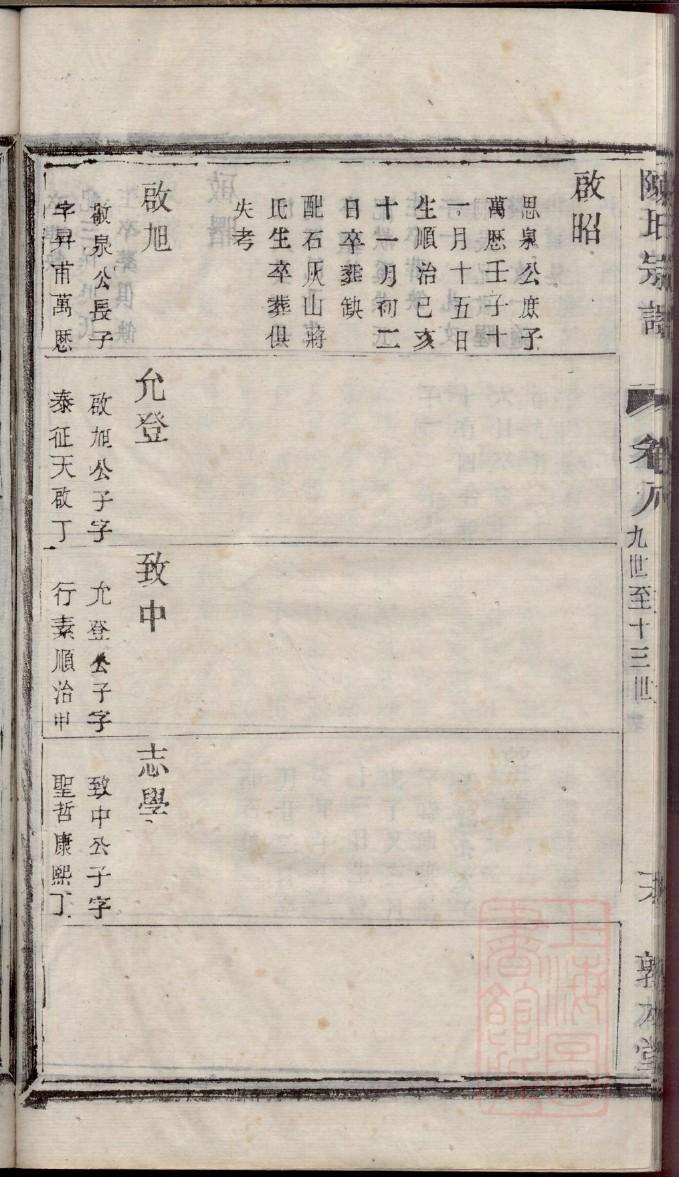 陳氏宗譜
卷八
九世至十三世
敦本堂
啟昭
思泉公庶子
萬厯壬子十
一月十五日
生順治己亥
十一月初二
日卒葬缺
配石灰山蔣
氏生卒葬俱
失考
啟旭
敬泉公長子
字昇甫萬厯
允登
啟旭公子字
泰征天啟丁
致中
允登公子字
行素順治甲
志學
致中公子字
聖哲康熙丁
上海圖書館藏